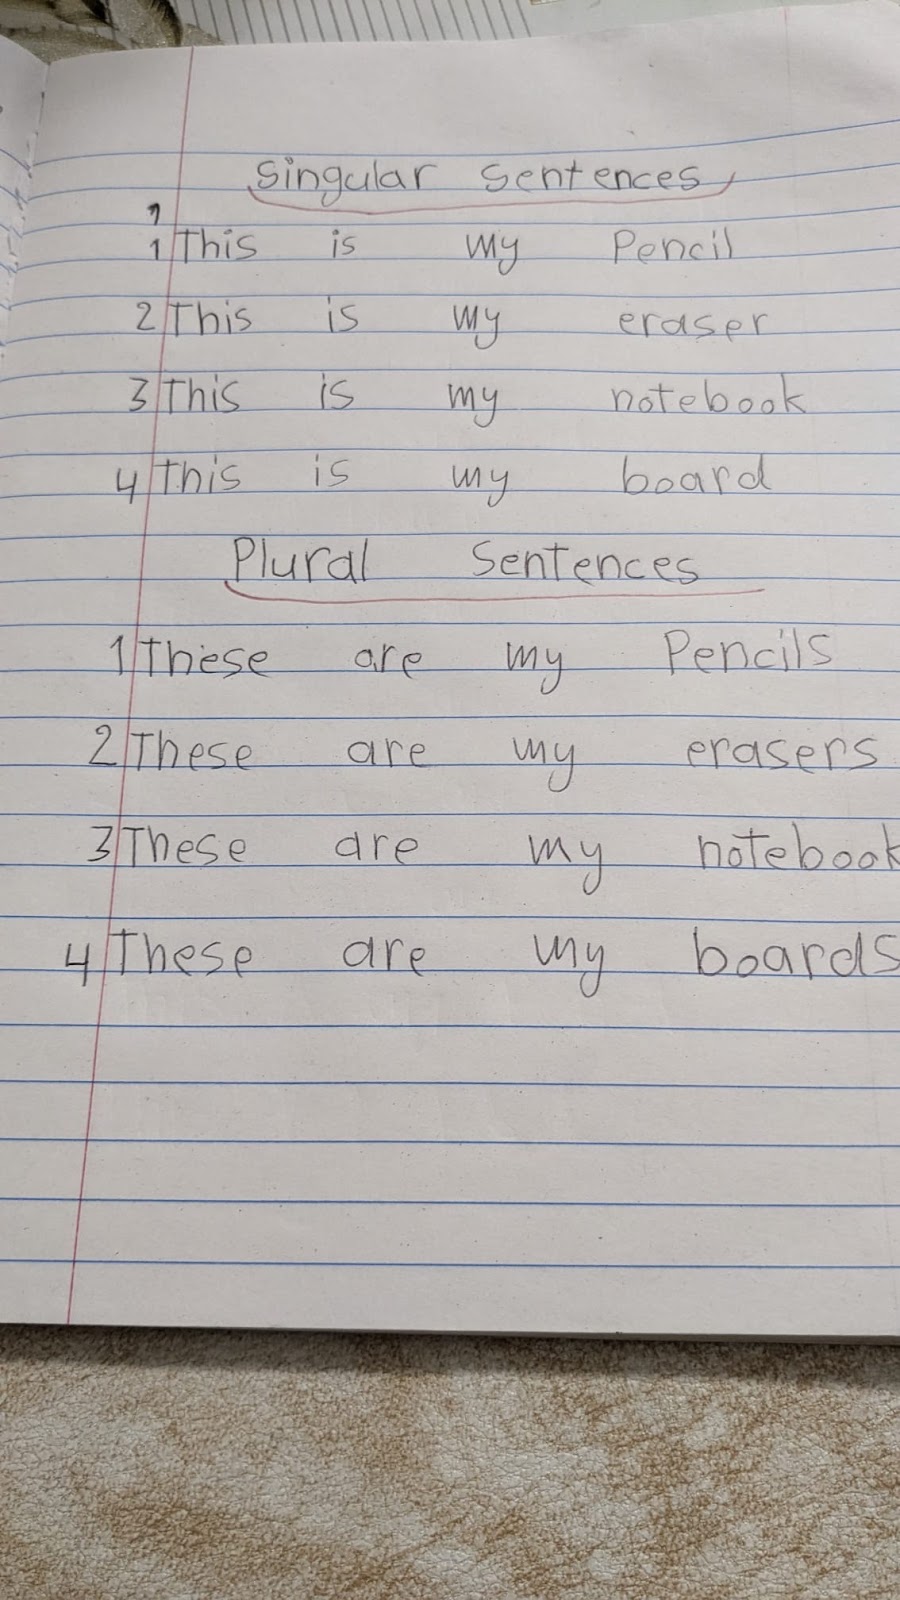 Singular Sentences
1 This is my Pencil
2 This is my eraser
3 This is my notebook
4 This is my board
Plural Sentences
1 These are my Pencils
2 These are my erasers
3 These are my notebook
4 These are my boards